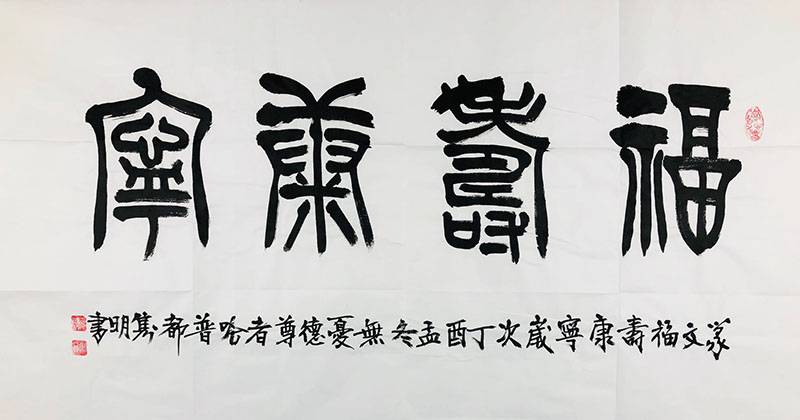 福壽康寧
篆文福壽康寧歲次丁酉孟冬無憂德尊者哈普都隽明書